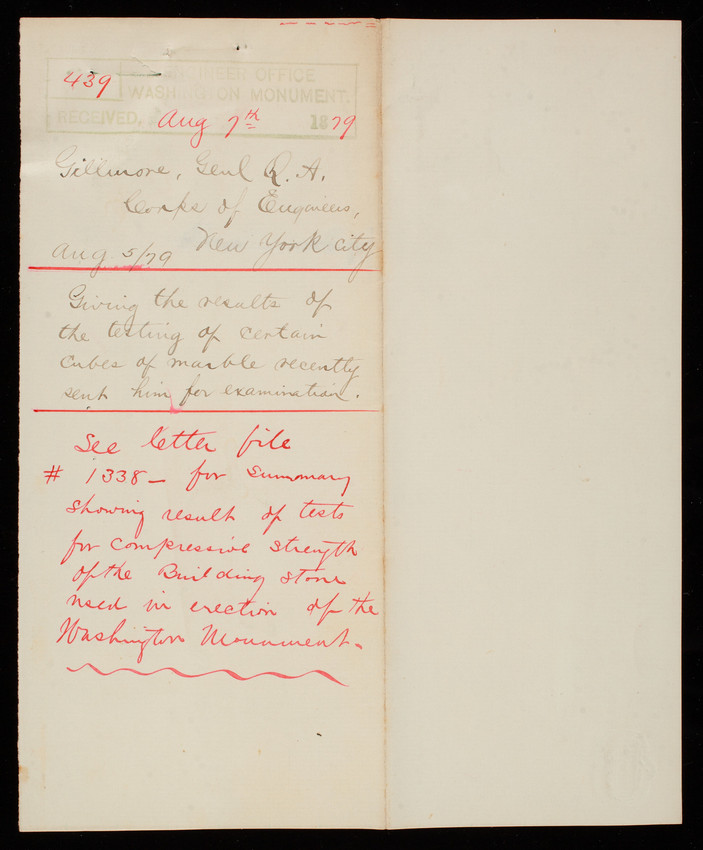 439
ENGINEER OFFICE
WASHINGTON MONUMENT.
RECEIVED, Aug 7th 1879
Gillmore, Genl Q. A.
Corps of Engineers,
New York City
Aug 5/79
Giving the results of
the testing of certain
cubes of marble recently
sent him for examination.
See letter file
# 1338 - for summary
showing result of tests
for compressive strength
of the Building stone
used in erection of the
Washington Monument.